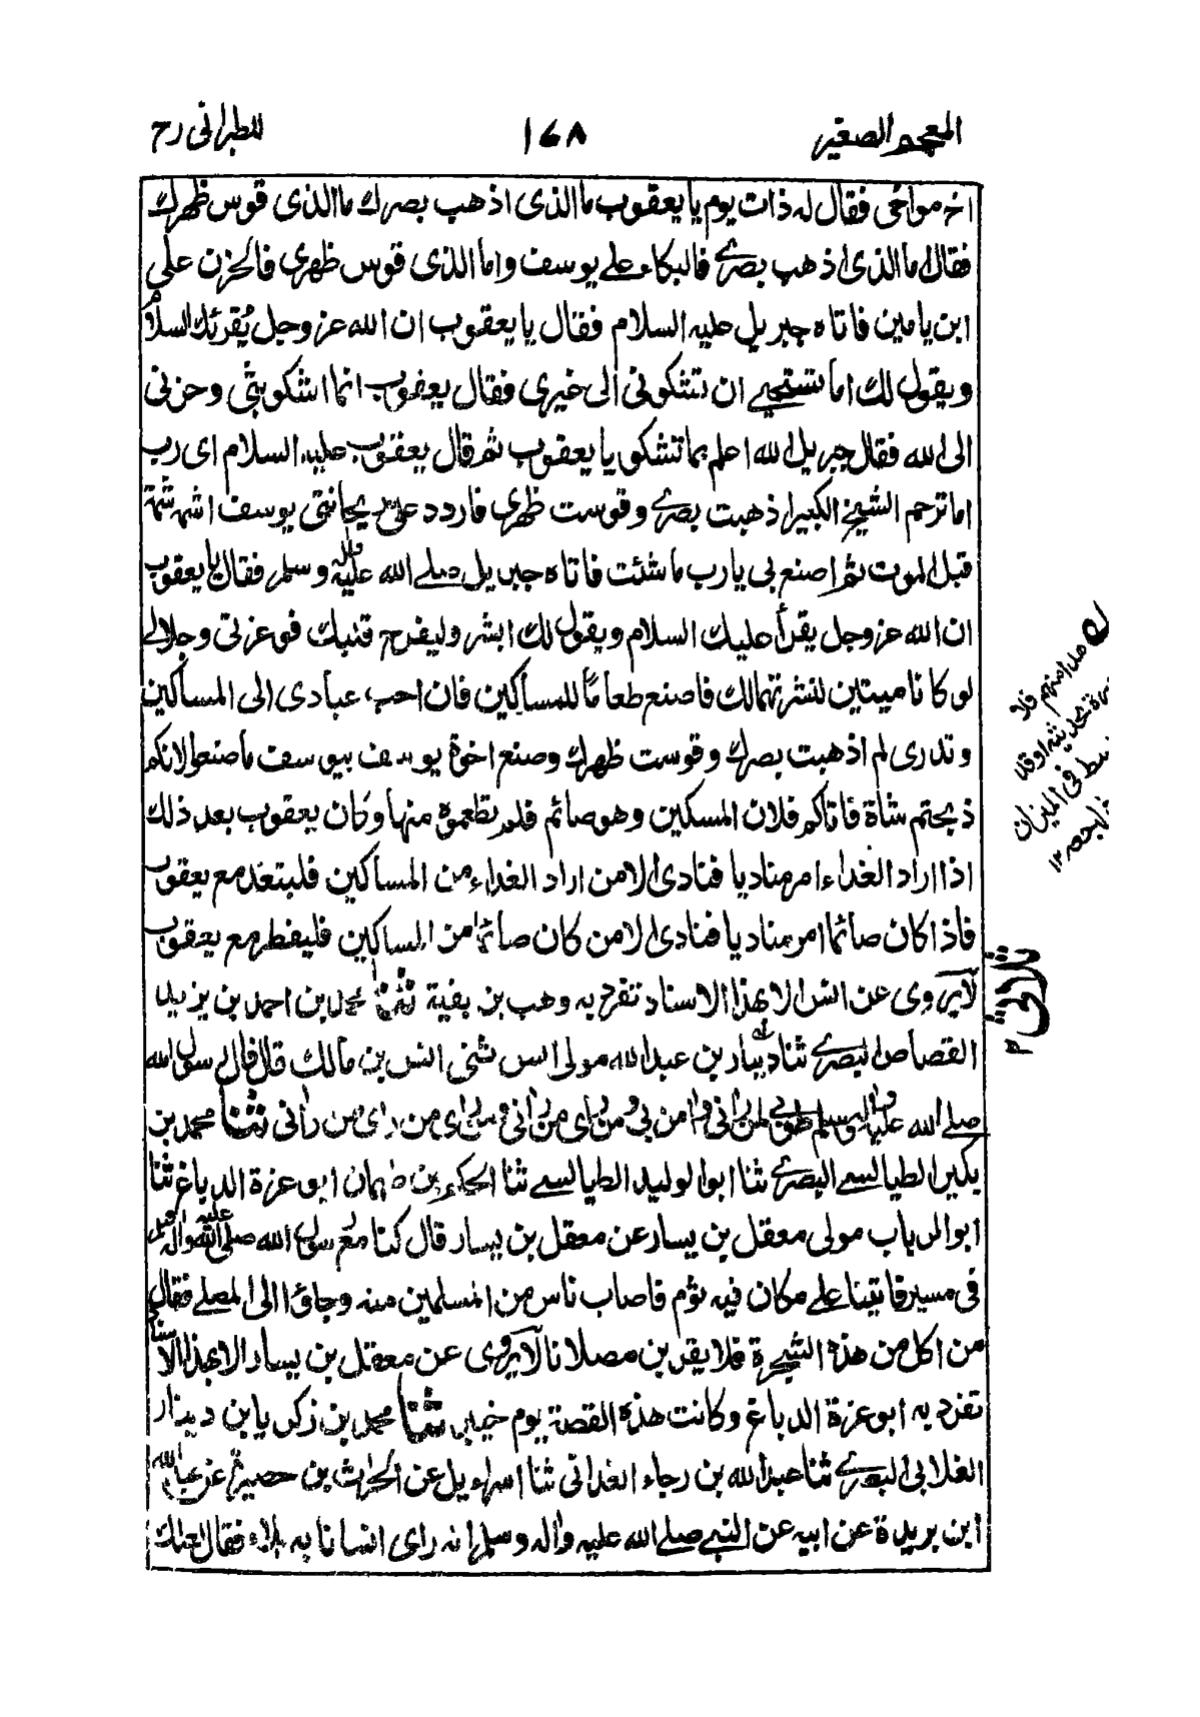 المعجم الصغير ۱۷۸ للطبراني رح
اخ مواخى فقال له ذات يوم يا يعقوب ما الذى اذهب بصرك ما الذى قوس ظهرك
فقال اما الذى اذهب بصرے فالبكاء علے يوسف واما الذى قوس ظهرى فالحزن على
ابن يامين فاتاه جبريل عليه السلام فقال يا يعقوب ان الله عز وجل يُقرئك السلام
ويقول لك اما تستحيے ان تشكونى الى غيرى فقال يعقوب انما اشكو بثى وحزنى
الى الله فقال جبريل الله اعلم بما تشكو يا يعقوب ثم قال يعقوب عليه السلام اى رب
اما ترحم الشيخ الكبير اذهبت بصرے وقوست ظهرى فاردد على ريحانتى يوسف اشمه شمة
قبل الموت ثم اصنع بى يا رب ما شئت فاتاه جبريل صلے الله عليه واله وسلم فقال يا يعقوب
ان الله عز وجل يقرأ عليك السلام ويقول لك ابشر وليفرح قلبك فو عزتى وجلالے
لو كانا ميتين لنشرتهما لك فاصنع طعامًا للمساكين فان احب عبادى الى المساكين
وتدرى لم اذهبت بصرك وقوست ظهرك وصنع اخوة يوسف بيوسف ما صنعوا لانكم
ذبحتم شاة فاتاكم فلان المسكين وهو صائم فلم تطعموه منها وكان يعقوب بعد ذلك
اذا اراد الغداء امر مناديا فنادى الا من اراد الغداء من المساكين فليتغد مع يعقوب
فاذا كان صائما امر مناديا فنادى الا من كان صائما من المساكين فليفطر مع يعقوب
لا يروى عن انس الا بهذا الاسناد تفرد به وهب بن بقية ثنا محمد بن احمد بن يزيد
القصاص البصرے ثنا دينار بن عبد الله مولى انس ثنى انس بن مالك قال قال رسول الله
صلے الله عليه واله وسلم طوبى لمن رانى وامن بى ومن راى من رانى ومن راى من راى من رانى ثنا محمد بن
بكير الطيالسے البصرے ثنا ابو الوليد الطيالسے ثنا الحكم بن طهمان ابو عزة الدباغ ثنا
ابو الرباب مولى معقل بن يسار عن معقل بن يسار قال كنا مع رسول الله صلى الله عليه واله وسلم
فى مسير فاتينا على مكان فيه ثوم فاصاب ناس من المسلمين منه وجاؤا الى المصلے فقال
من اكل من هذه الشجرة فلا يقربن مصلانا لا يروى عن معقل بن يسار الا بهذا الاسناد
تفرد به ابو عزة الدباغ وكانت هذه القصة يوم خيبر ثنا محمد بن زكريا بن دينار
الغلابى البصرے ثنا عبد الله بن رجاء الغدانى ثنا اسرائيل عن الحارث بن حصيرة عن عبد الله
ابن بريدة عن ابيه عن النبے صلے الله عليه واله وسلم انه راى انسانا به بلاء فقال لعلك
ثلاثى